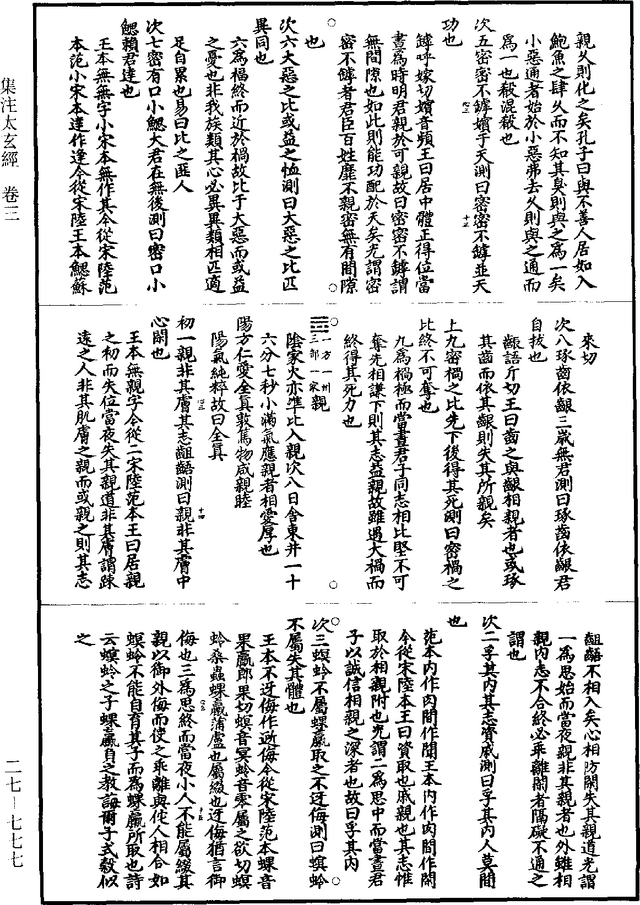 集注太玄經 卷三
二七—七七七
親久則化之矣孔子曰與不善人居如入
鮑魚之肆久而不知其臭則與之為一矣
小惡通者始於小惡弗去久則與之通而
為一也殺混殺也
次五密密不罅嬪于天測曰密密不罅並天
功也
罅呼嫁切嬪音頻王曰居中體正得位當
晝為時明君親於可親故曰密密不罅謂
無間隙也如此則能功配於天矣光謂密
密不罅者君臣百姓靡不親密無有間隙
也
次六大惡之比或益之恤測曰大惡之比匹
異同也
六為福終而近於禍故比于大惡而或益
之憂也非我族類其心必異異類相匹適
足自累也易曰比之匪人
次七密有口小鰓大君在無後測曰密口小
鰓賴君達也
王本無無字小宋本無作其今從宋陸范
本范小宋本達作逢今從宋陸王本鰓蘇
來切
次八琢齒依齦三歲無君測曰琢齒依齦君
自拔也
齦語斤切王曰齒之與齦相親者也或琢
其齒而依其齦則失其所親矣
上九密禍之比先下後得其死測曰密禍之
比終不可奪也
九為禍極而當晝君子同志相比堅不可
奪先相謙下則其志益親故雖遇大禍而
終得其死力也
一方一州三部一家親
陰家火亦準比入親次八日舍東井一十
六分七秒小滿氣應親者相愛厚也
陽方仁愛全真敦篤物咸親睦
陽氣純粹故曰全真
初一親非其膚其志齟齬測曰親非其膚中
心閑也
王本無親字今從二宋陸范本王曰居親
之初而失位當夜失其親道非其膚謂踈
遠之人非其肌膚之親而或親之則其志
齟齬不相入矣心相防閑失其親道光謂
一為思始而當夜親非其親者也外雖相
親內志不合終必乖離閑者隔礙不通之
謂也
次二孚其內其志資戚測曰孚其內人莫間
也
范本內作肉間作閑王本內作肉間作閑
今從宋陸本王曰資取也戚親也其志惟
取於相親附也光謂二為思中而當晝君
子以誠信相親之深者也故曰孚其內
次三螟蛉不屬蜾蠃取之不迓侮測曰螟蛉
不屬失其體也
王本不迓侮作迺侮今從宋陸范本蜾音
果蠃郎果切螟音冥蛉音零屬之欲切螟
蛉桑蟲蜾蠃蒲盧也屬綴也迓侮猶言御
侮也三為思終而當夜小人不能屬綴其
親以御外侮而使之乖離與佗人相合如
螟蛉不能自育其子而為蜾蠃所取也詩
云螟蛉之子蜾蠃負之教誨爾子式穀似
之